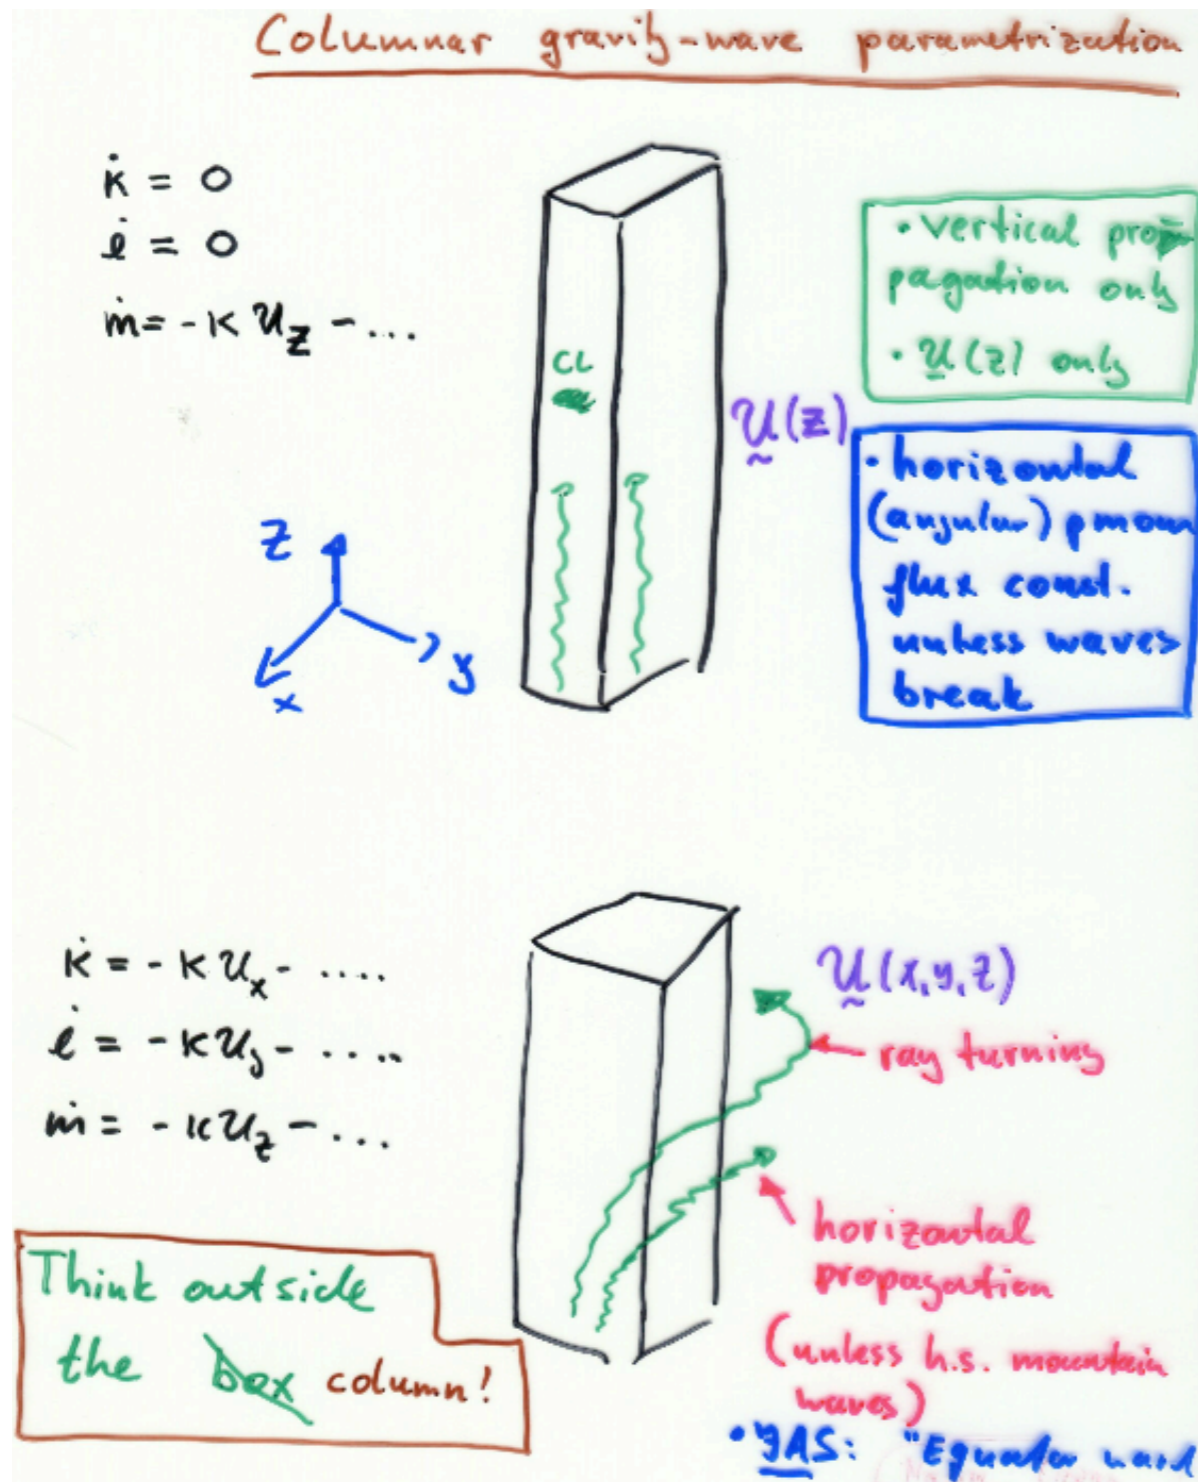 Columnar gravity-wave parametrization
k̇ = 0
l̇ = 0
ṁ = -k U_z - ...
CL
U(z)
• vertical pro-
pagation only
• U(z) only
• horizontal
(angular) pmom
flux const.
unless waves
break
z
x
y
k̇ = -k U_x - ....
l̇ = -k U_y - ....
ṁ = -k U_z - ...
U(x,y,z)
ray turning
horizontal
propagation
(unless h.s. mountain
waves)
Think outside
the box column!
• YAS: "Equator ward